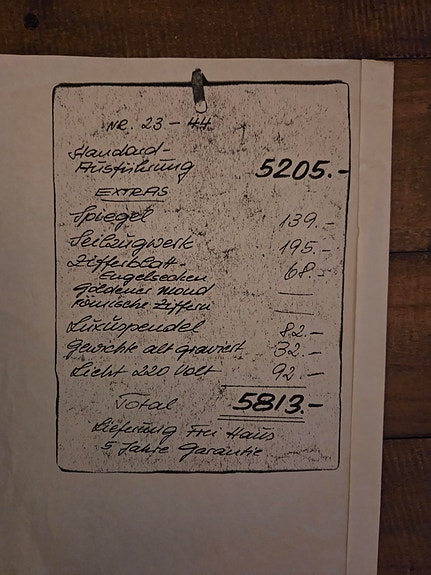 NR. 23 - 44
Standard-
Ausführung 5205.-
EXTRAS
Spiegel 139.-
Seilzugwerk 195.-
Zifferblatt-
Engelsecken 68.-
Goldener Mond —
Römische Ziffern —
Luxuspendel 82.-
Gewichte alt graviert 32.-
Licht 220 Volt 92.-
Total 5813.-
Lieferung Frei Haus
5 Jahre Garantie